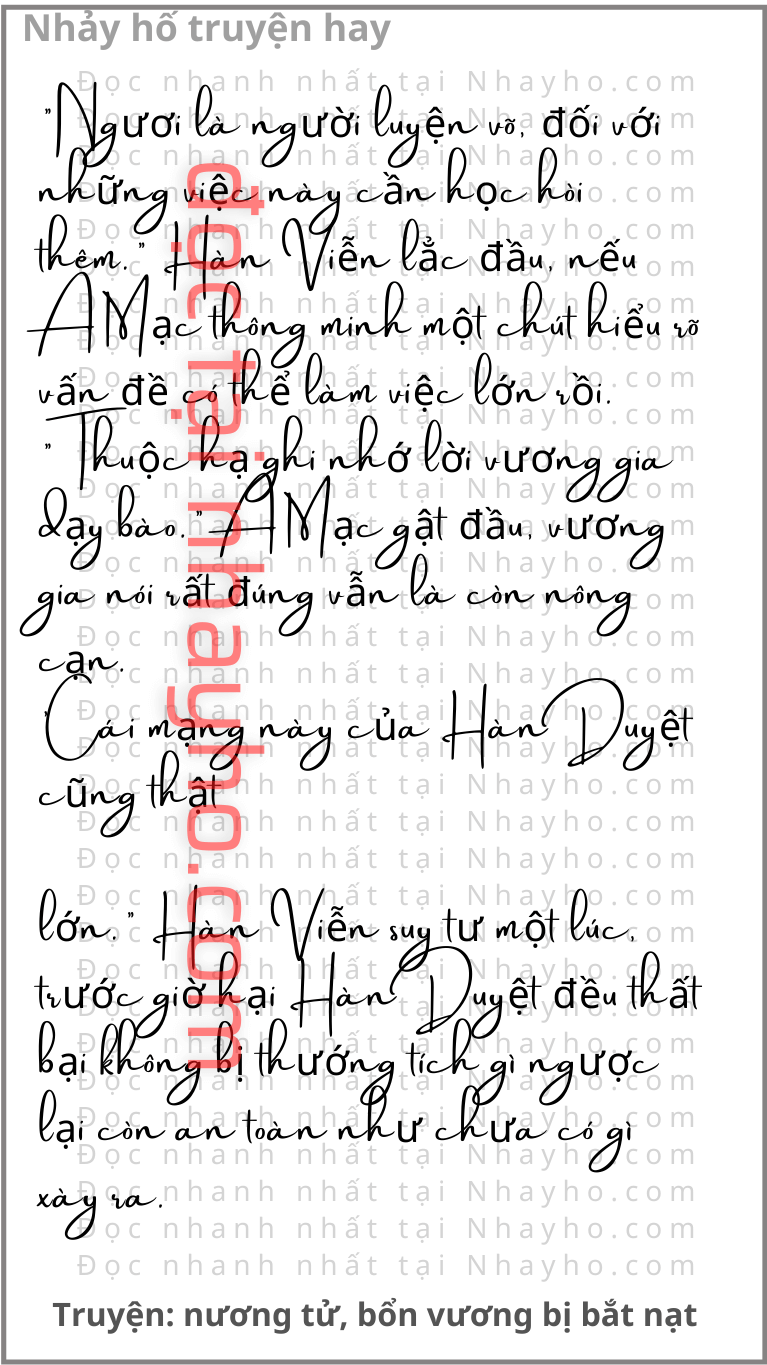 Nhảy hố truyện hay
"Ngươi là người luyện võ, đối với
những việc này cần học hỏi
thêm." Hàn Viễn lắc đầu, nếu
A Mạc thông minh một chút hiểu rõ
vấn đề có thể làm việc lớn rồi.
"Thuộc hạ ghi nhớ lời vương gia
dạy bào." A Mạc gật đầu, vương
gia nói rất đúng vẫn là còn nông
cạn.
"Cái mạng này của Hàn Duyệt
cũng thật
lớn." Hàn Viễn suy tư một lúc,
trước giờ hại Hàn Duyệt đều thất
bại không bị thướng tích gì ngược
lại còn an toàn như chưa có gì
xày ra.
đọc tại nhayho.com
Đọc nhanh nhất tại Nhayho.com
Truyện: nương tử, bổn vương bị bắt nạt